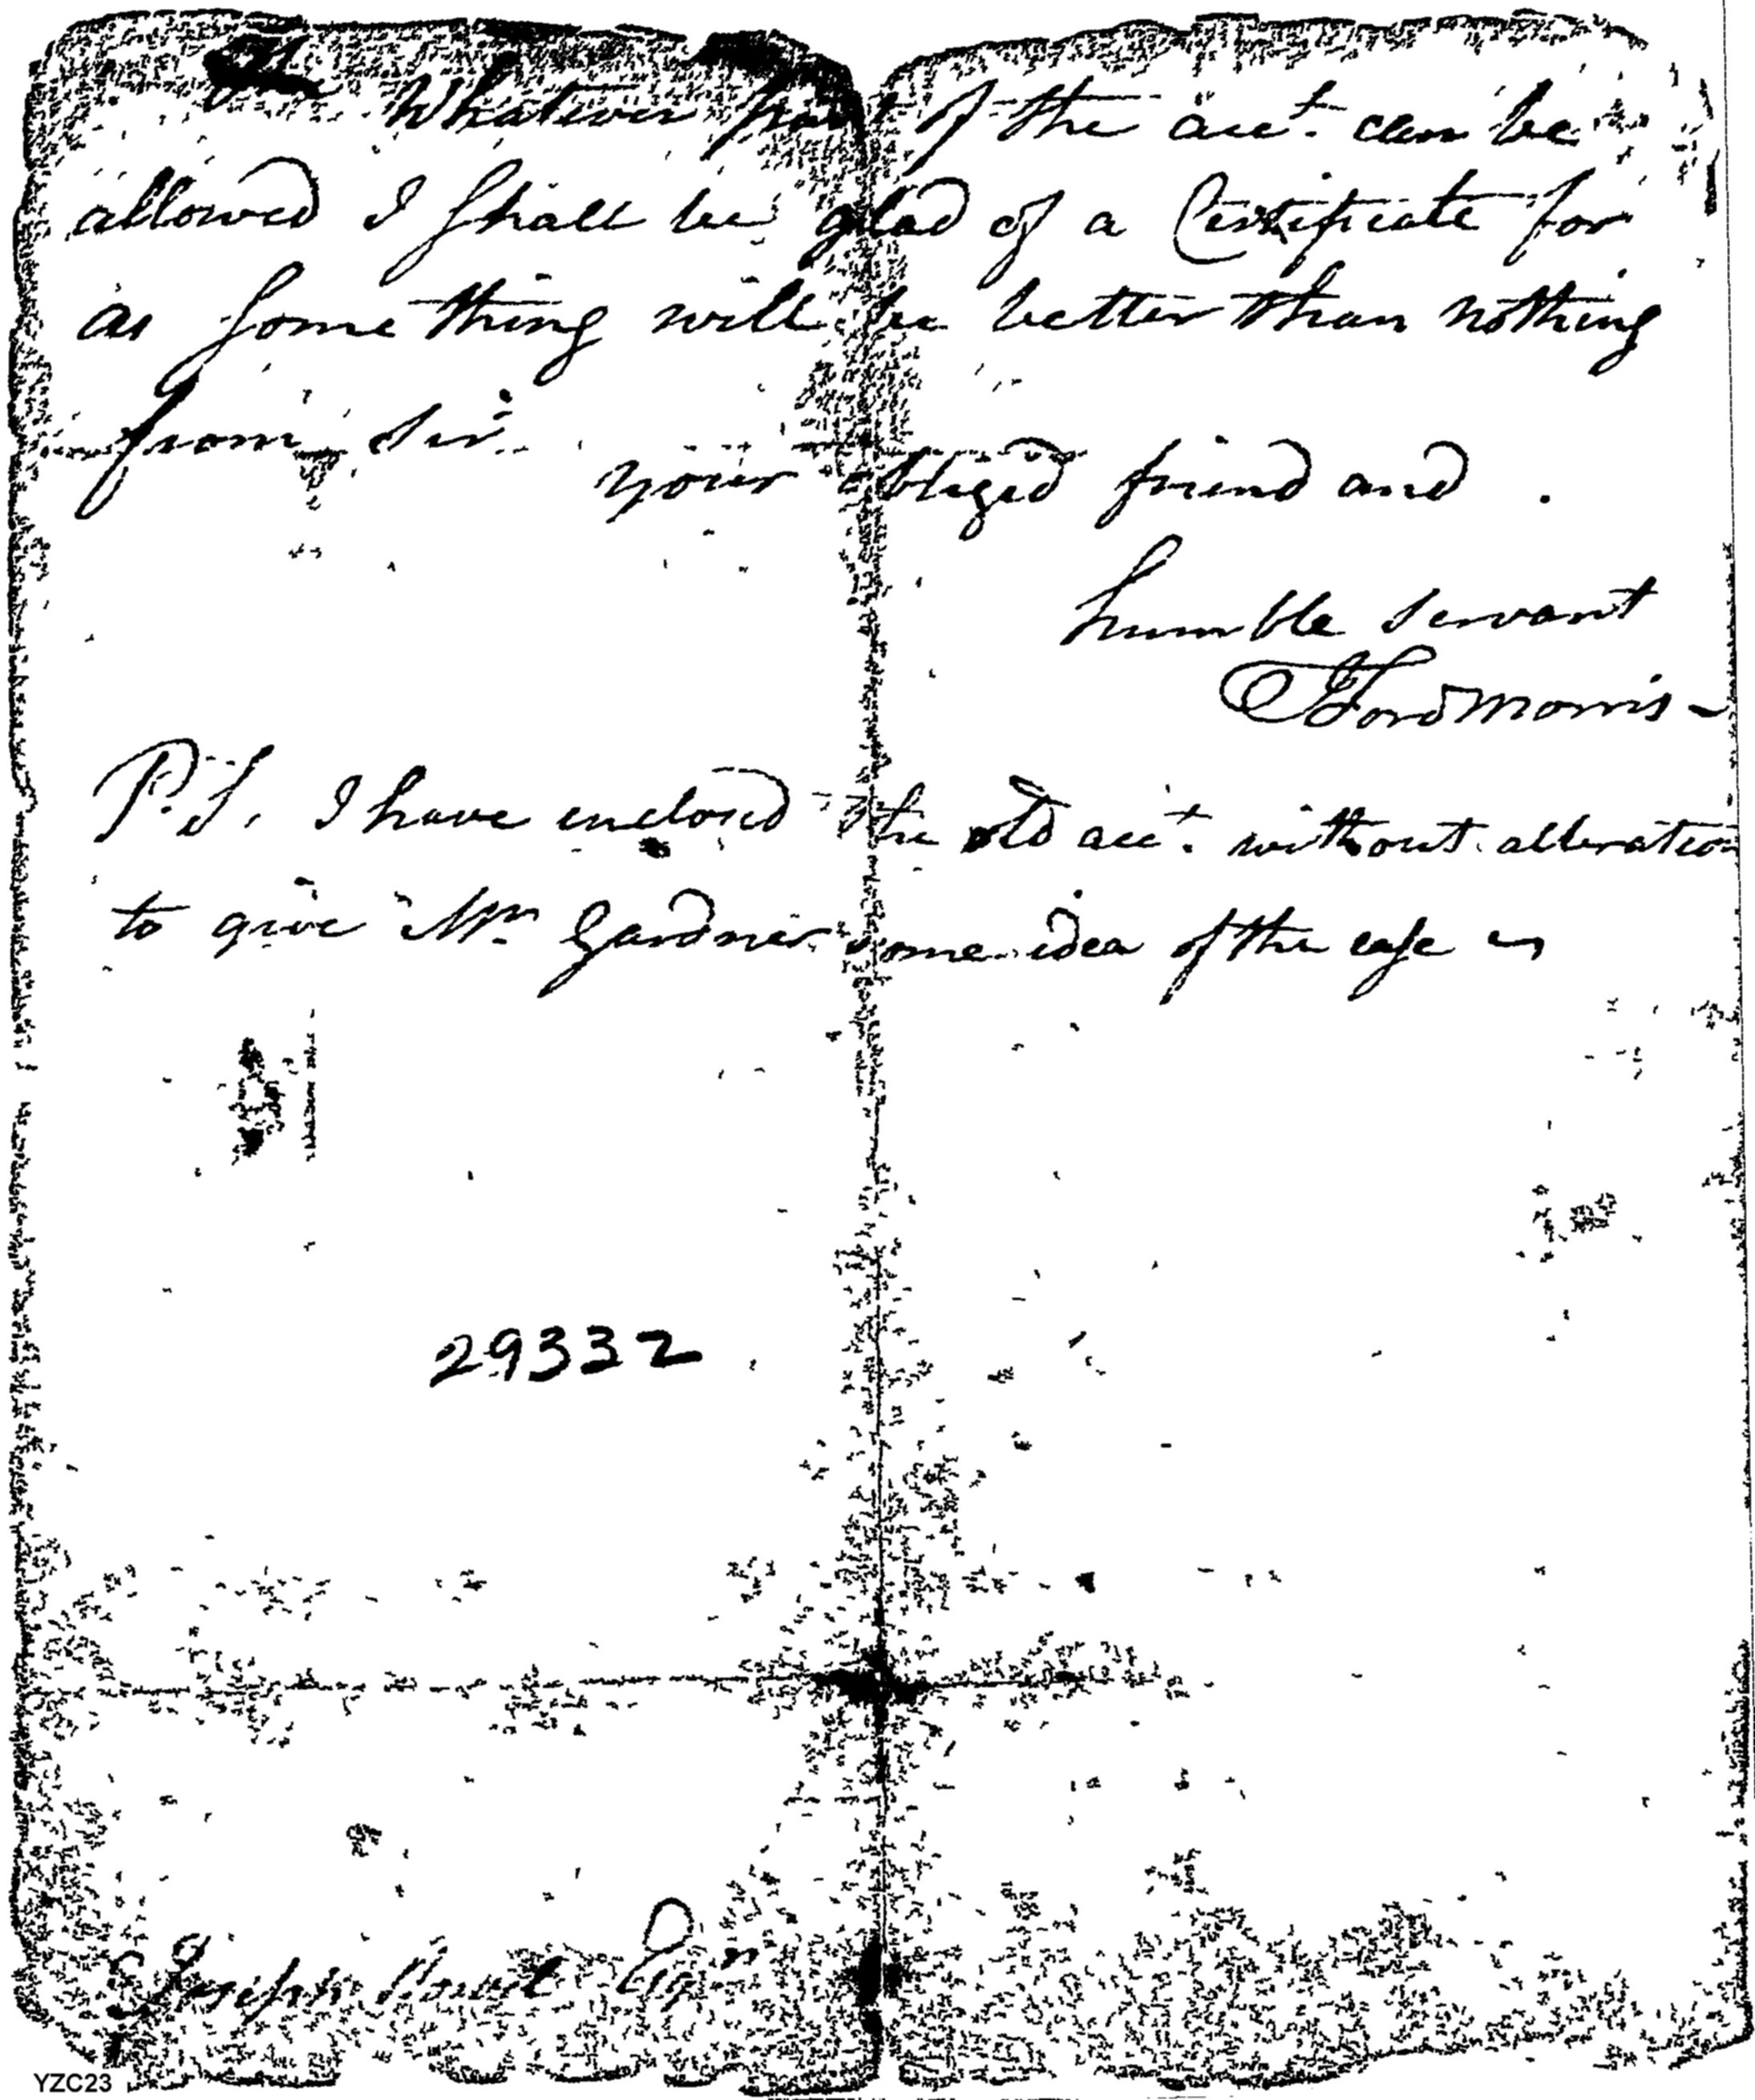 Whatever part of the acct. can be
allowed I shall be glad of a Certificate for
as some thing will be better than nothing
from Sir
your obliged friend and
humble Servant
Ford Morris
P.S. I have enclosed the old acct. without alteration
to give Mr. Gardner some idea of the case
29332
Joseph Esqr
YZC23